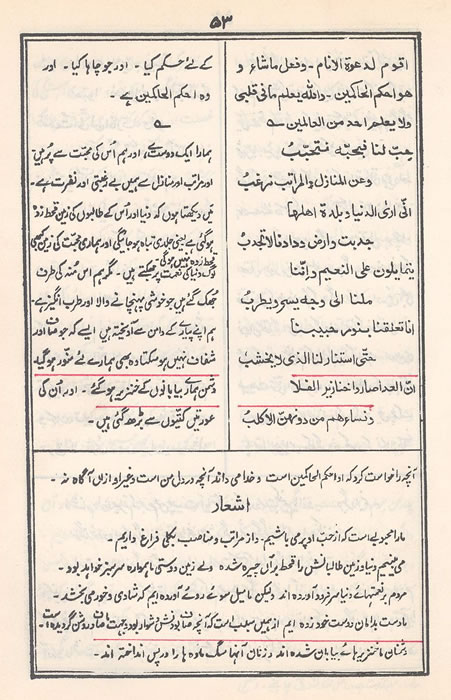 ۵۳
اقوم لدعوة الانام۔ وفعل ماشاء و
هو احكم الحاكمين۔ والله يعلم مافى قلبى
ولا يعلم احد من العالمين
حِبّ لنا فبحبّه نتحبّبُ
وعن المنازل والمراتب نرغبُ
انّى ارى الدنيا وبلدة اهلها
جدبت وارض ودادنا لاتجدبُ
يتمايلون على النعيم وإنّنا
ملنا الى وجهٍ يسرّ ويطربُ
انا تعلقنا بنور حبيبنا
حتى استنار لنا الذى لا يخشبُ
انّ العدا صاروا خنازير الفلا
ونساءهم من دونهنّ الأكلبُ
کے لئے حکم کیا۔ اور جو چاہا کیا۔ اور
وہ احکم الحاکمین ہے۔
ہمارا ایک دوست ہے اور ہم اُس کی محبت سے پُر ہیں
اور مراتب اور منازل سے ہمیں بے رغبتی اور نفرت ہے۔
میں دیکھتا ہوں کہ دنیا اور اُس کے طالبوں کی زمین قحط زدہ
ہو گئی ہے یعنی جلدی تباہ ہو جائیگی اور ہماری محبت کی زمین کبھی
قحط زدہ نہیں ہو گی۔
لوگ دنیا کی نعمت پر جھکتے ہیں۔ مگر ہم اس منہ کی طرف
جھک گئے ہیں جو خوشی پہنچانے والا اور طرب انگیز ہے۔
ہم اپنے پیارے کے دامن سے آویختہ ہیں ایسے کہ جو صاف اور
شفاف نہیں ہو سکتا وہ بھی ہمارے لئے منور ہو گیا۔
دشمن ہمارے بیابانوں کے خنزیر ہو گئے۔ اور اُن کی
عورتیں کتیوں سے بڑھ گئی ہیں۔
آنچہ را خواست کرد کہ او احکم الحاکمین است و خدا می داند آنچہ در دل من است و غیر او ازاں آگاہ نہ۔
اشعار
مارا محبوبے است کہ از حبّ او پُر می باشیم۔ و از مراتب و مناصب بکلی فراغ داریم۔
می بینیم دنیا و زمین طالبانش را قحط بر آں چیرہ شدہ ولے زمین دوستی ما ہموارہ سرسبز خواہد بود۔
مردم بر نعمتہائے دنیا سر فرود آوردہ اند ولیکن ما میل سوئے روئے آوردہ ایم کہ شادی و خورمی بخشد۔
ما دست بدامان دوست خود زدہ ایم از ہمیں سبب است کہ آنچہ صاف بودنش دشوار بود بجہت ما صاف و روشن گردیدہ است۔
دشمنان ما خنزیر ہائے بیابان شدہ اند و زنان آنہا سگ مادہ ہا را در پس انداختہ اند۔